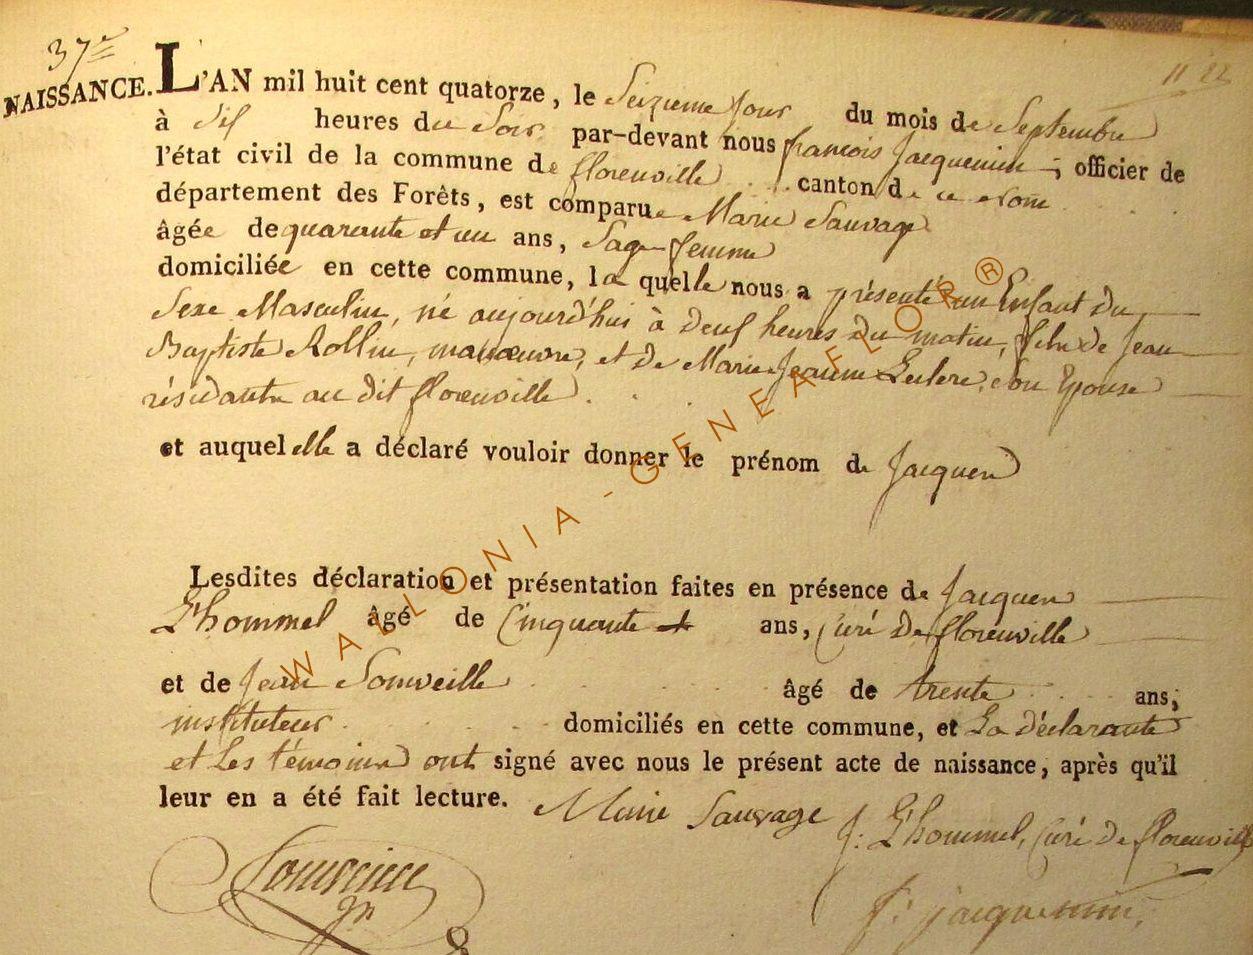 37e
NAISSANCE.
11 22
L'AN mil huit cent quatorze, le Seizieme jour du mois de Septembre
à Six heures du Soir par-devant nous francois Jacquemin, officier de
l'état civil de la commune de florenville canton de ce nom
département des Forêts, est comparue Marie Sauvage
âgée de quarante et un ans, Sage femme
domiciliée en cette commune, la quelle nous a présenté un Enfant du
Sexe Masculin, né aujourd'hui à deux heures du matin, fils de Jean
Baptiste Rollin, manœuvre, et de Marie Jeanne Leclere, son Epouse
résidants au dit florenville.
et auquel elle a déclaré vouloir donner le prénom de Jacques
Lesdites déclaration et présentation faites en présence de Jacques
L'hommel âgé de Cinquante ans, Curé de florenville
et de Jean Sonveille âgé de trente ans,
instituteur domiciliés en cette commune, et La déclarante
et Les témoins ont signé avec nous le présent acte de naissance, après qu'il
leur en a été fait lecture. Marie Sauvage
J: L'hommel, Curé de florenville
f: jacquemin,
WALLONIA-GENEAFLOR®